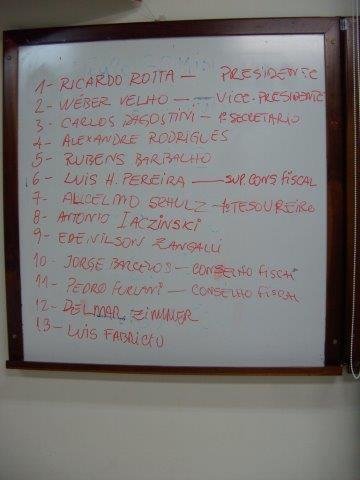 1- RICARDO ROTTA — PRESIDENTE
2- WÉBER VELHO — VICE-PRESIDENTE
3- CARLOS DAGOSTINI - 1º SECRETÁRIO
4- ALEXANDRE RODRIGUES
5- RUBENS BARBALHO
6- LUIS H. PEREIRA — SUP. CONS. FISCAL
7- ALICELMO SCHULZ - 1º TESOUREIRO
8- ANTONIO IACZINSKI
9- EDENILSON ZANGALLI
10- JORGE BARCELOS - CONSELHO FISCAL
11- PEDRO FURLANI - CONSELHO FISCAL
12- DELMAR ZIMMER
13- LUIS FABRICIO